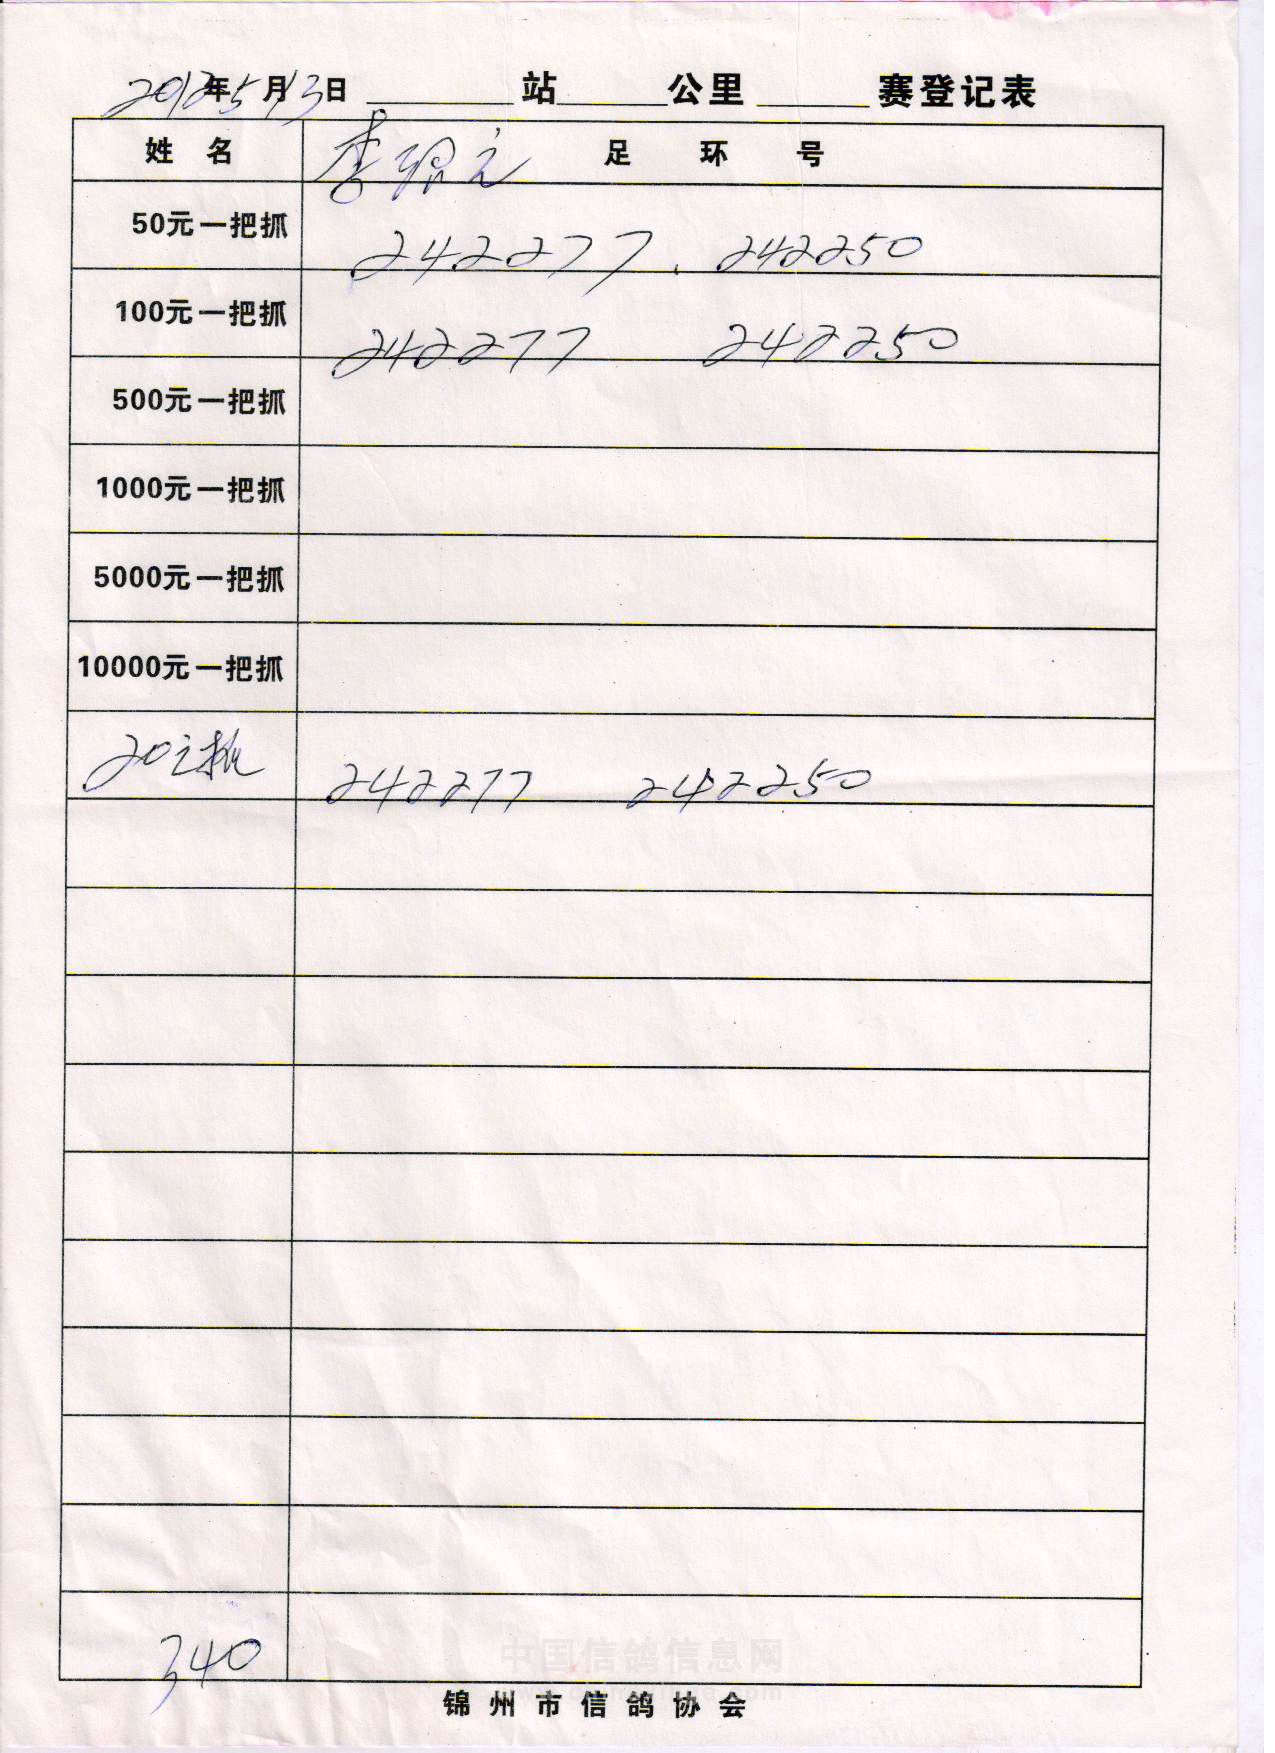 2012年5月13日 站 公里 赛登记表
姓 名 李 足 环 号
50元一把抓 242277、242250
100元一把抓 242277 242250
500元一把抓
1000元一把抓
5000元一把抓
10000元一把抓
20元 242277 242250
340
中国信鸽信息网
锦州市信鸽协会